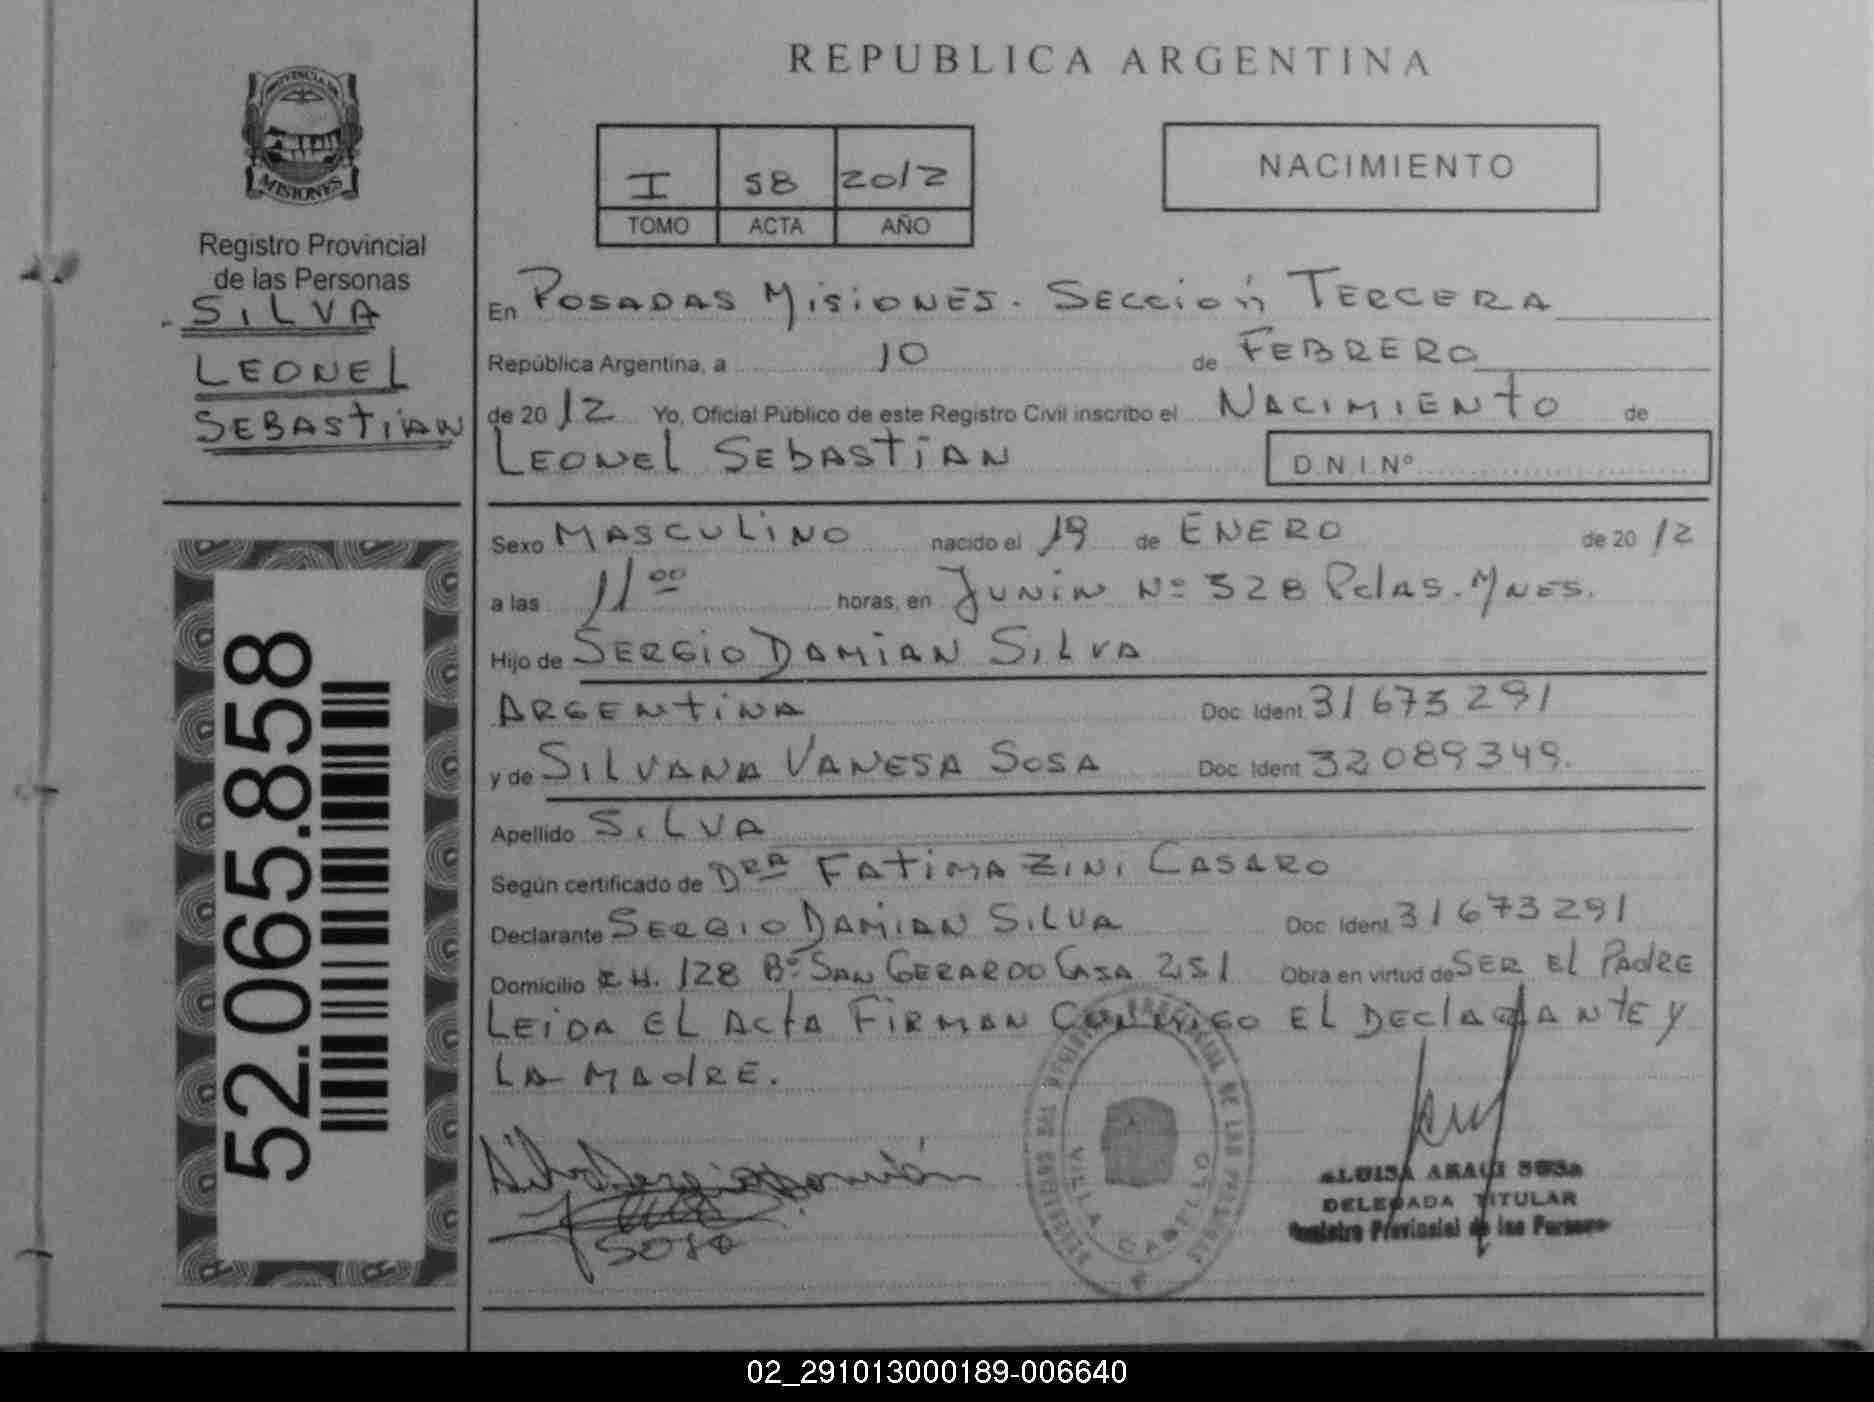 REPUBLICA ARGENTINA
PROVINCIA DE
MISIONES
Registro Provincial
de las Personas
SILVA
LEONEL
SEBASTIAN
52.065.858
I 58 2012
TOMO ACTA AÑO
NACIMIENTO
En POSADAS MISIONES. SECCIÓN TERCERA
República Argentina, a 10 de FEBRERO
de 2012 Yo, Oficial Público de este Registro Civil inscribo el NACIMIENTO de
LEONEL SEBASTIAN D.N.I.Nº
Sexo MASCULINO nacido el 19 de ENERO de 2012
a las 11 00 horas, en JUNIN Nº 328 Pdas. Mnes.
Hijo de SERGIO DAMIAN SILVA
ARGENTINA Doc. Ident 31673291
y de SILVANA VANESA SOSA Doc. Ident 32089349.
Apellido SILVA
Según certificado de DRA FATIMA ZINI CASARO
Declarante SERGIO DAMIAN SILVA Doc. Ident 31673291
Domicilio CH. 128 Bº SAN GERARDO CASA 251 Obra en virtud de SER EL PADRE
LEIDA EL ACTA FIRMAN CONMIGO EL DECLARANTE Y
LA MADRE.
Silva Sergio Damián
Sosa
VILLA CABELLO
LUISA ARACI SOSA
DELEGADA TITULAR
Registro Provincial de las Personas
02_291013000189-006640